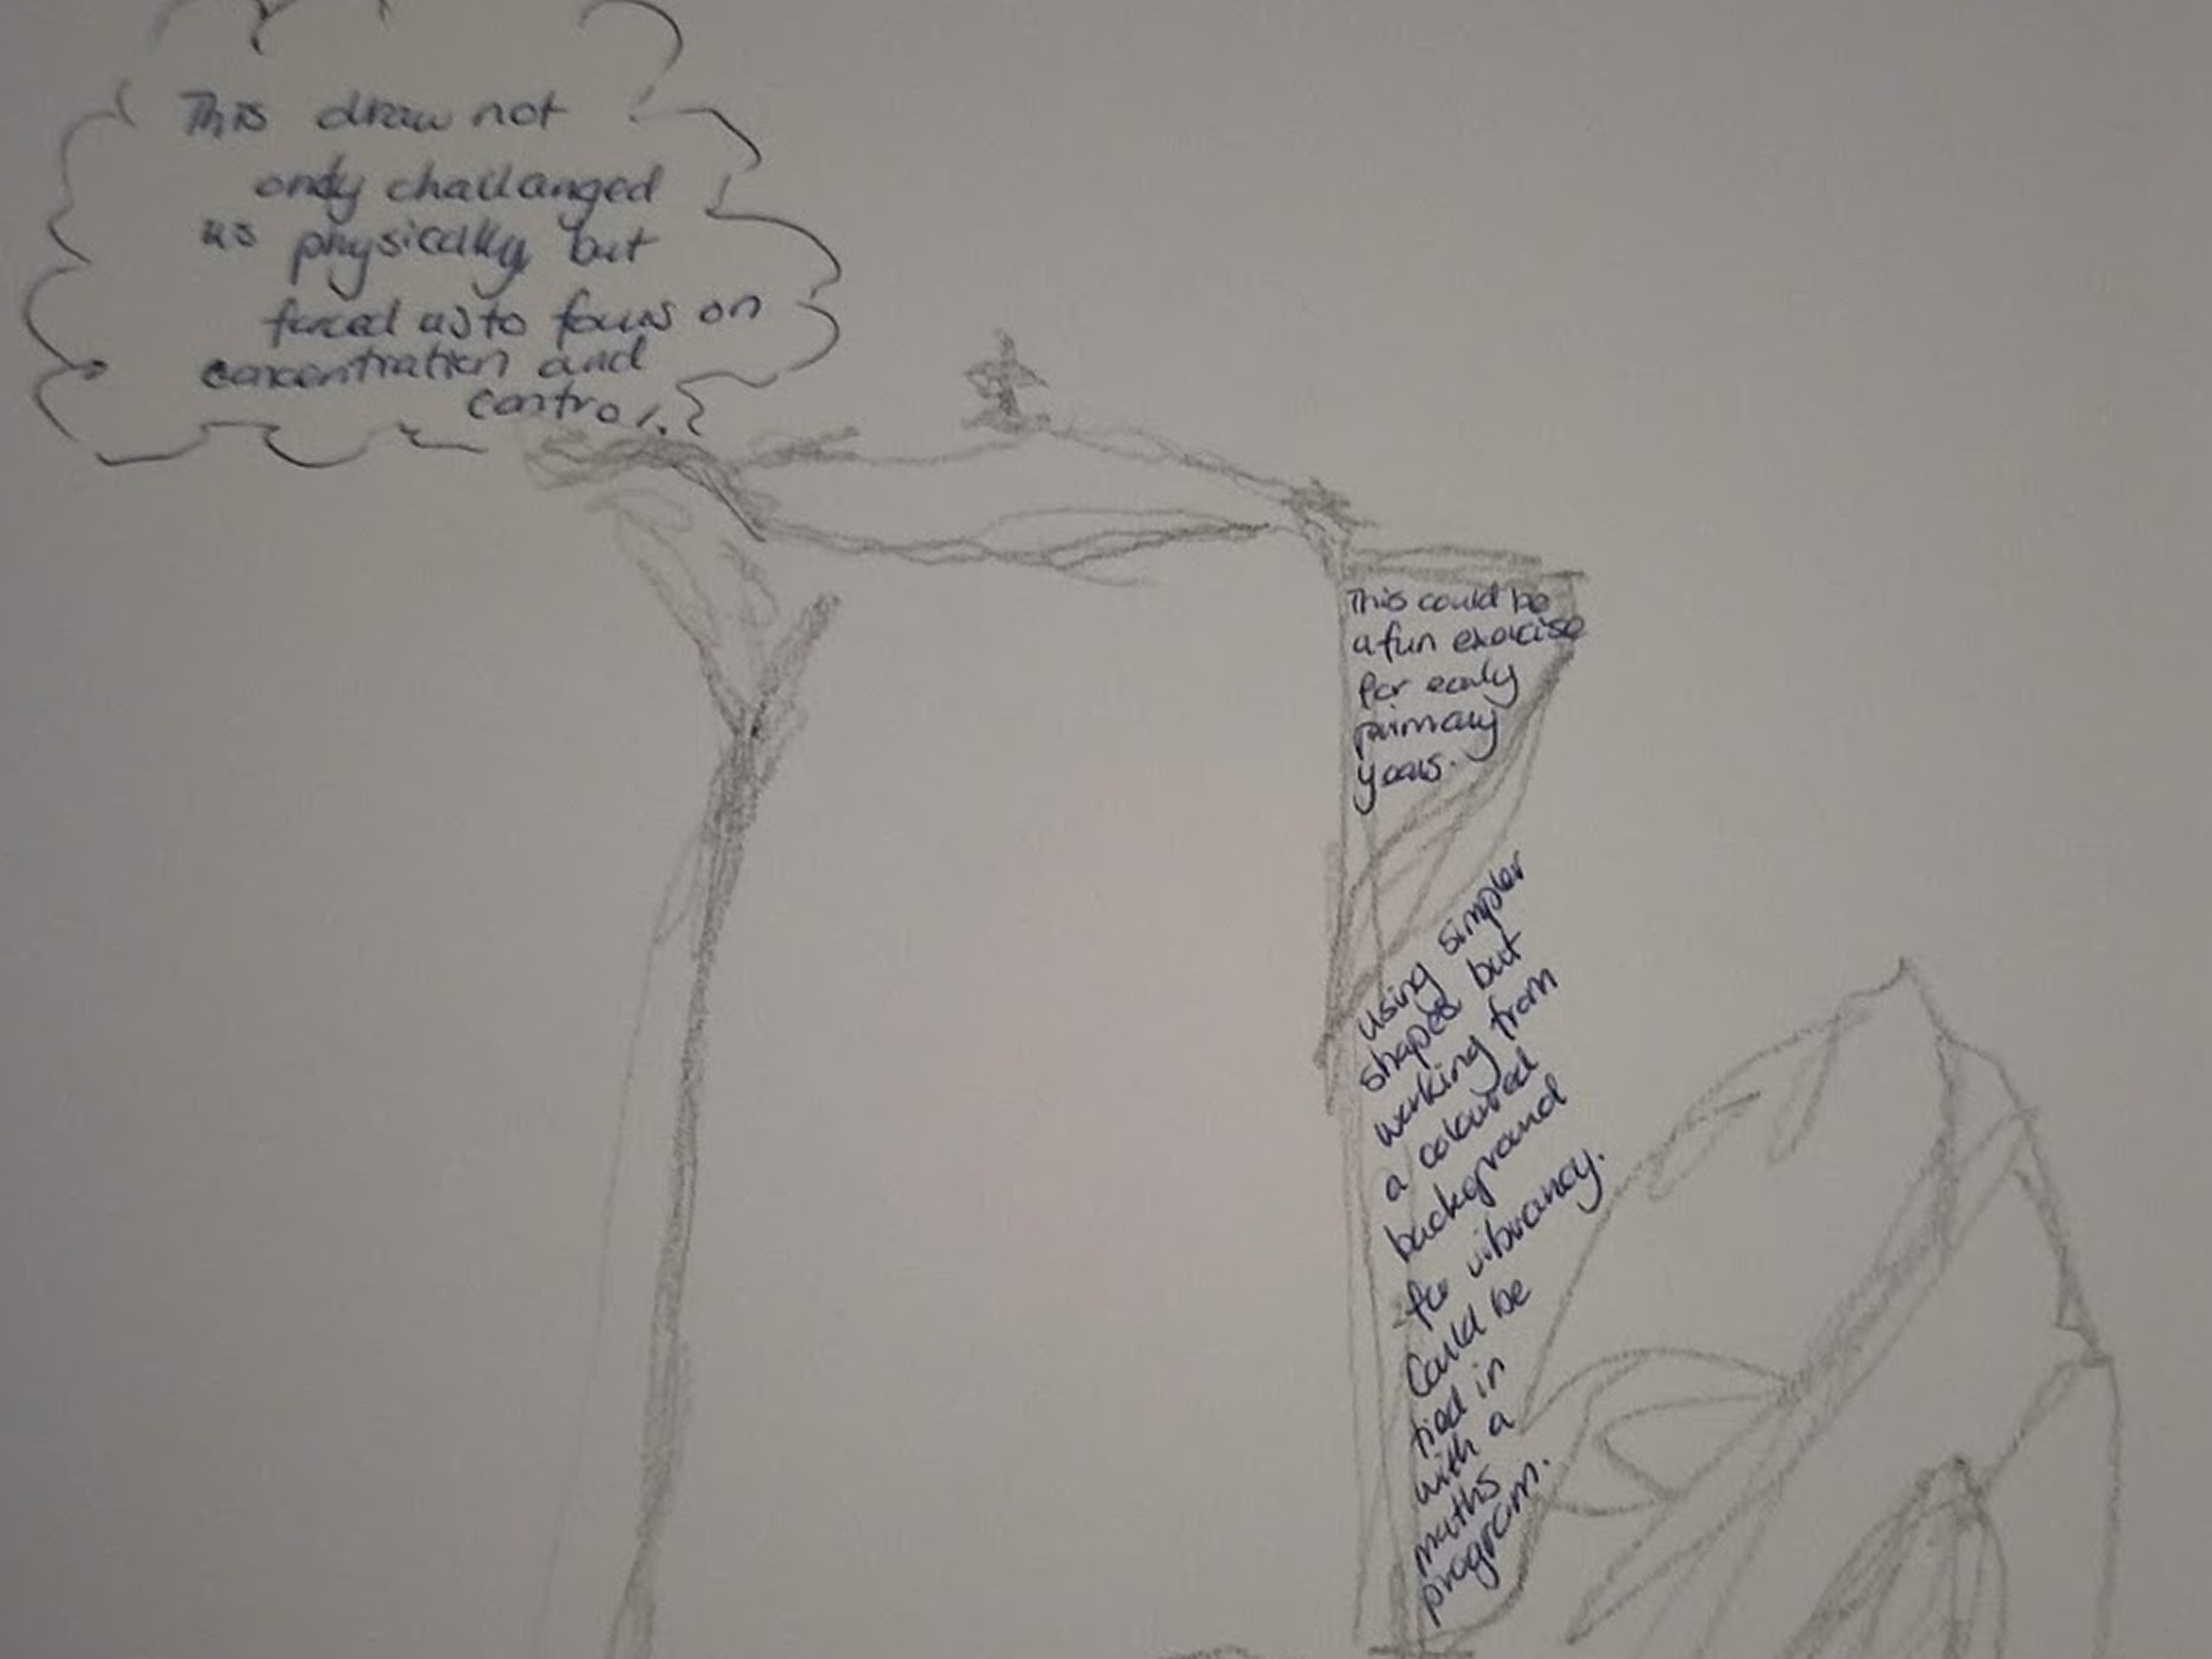 This draw not
only challanged
us physically but
forced us to focus on
concentration and
control.
This could be
a fun exercise
for early
primary
years.
using simpler
shapes but
working from
a coloured
background
for vibrancy.
Could be
tied in
with a
maths
program.